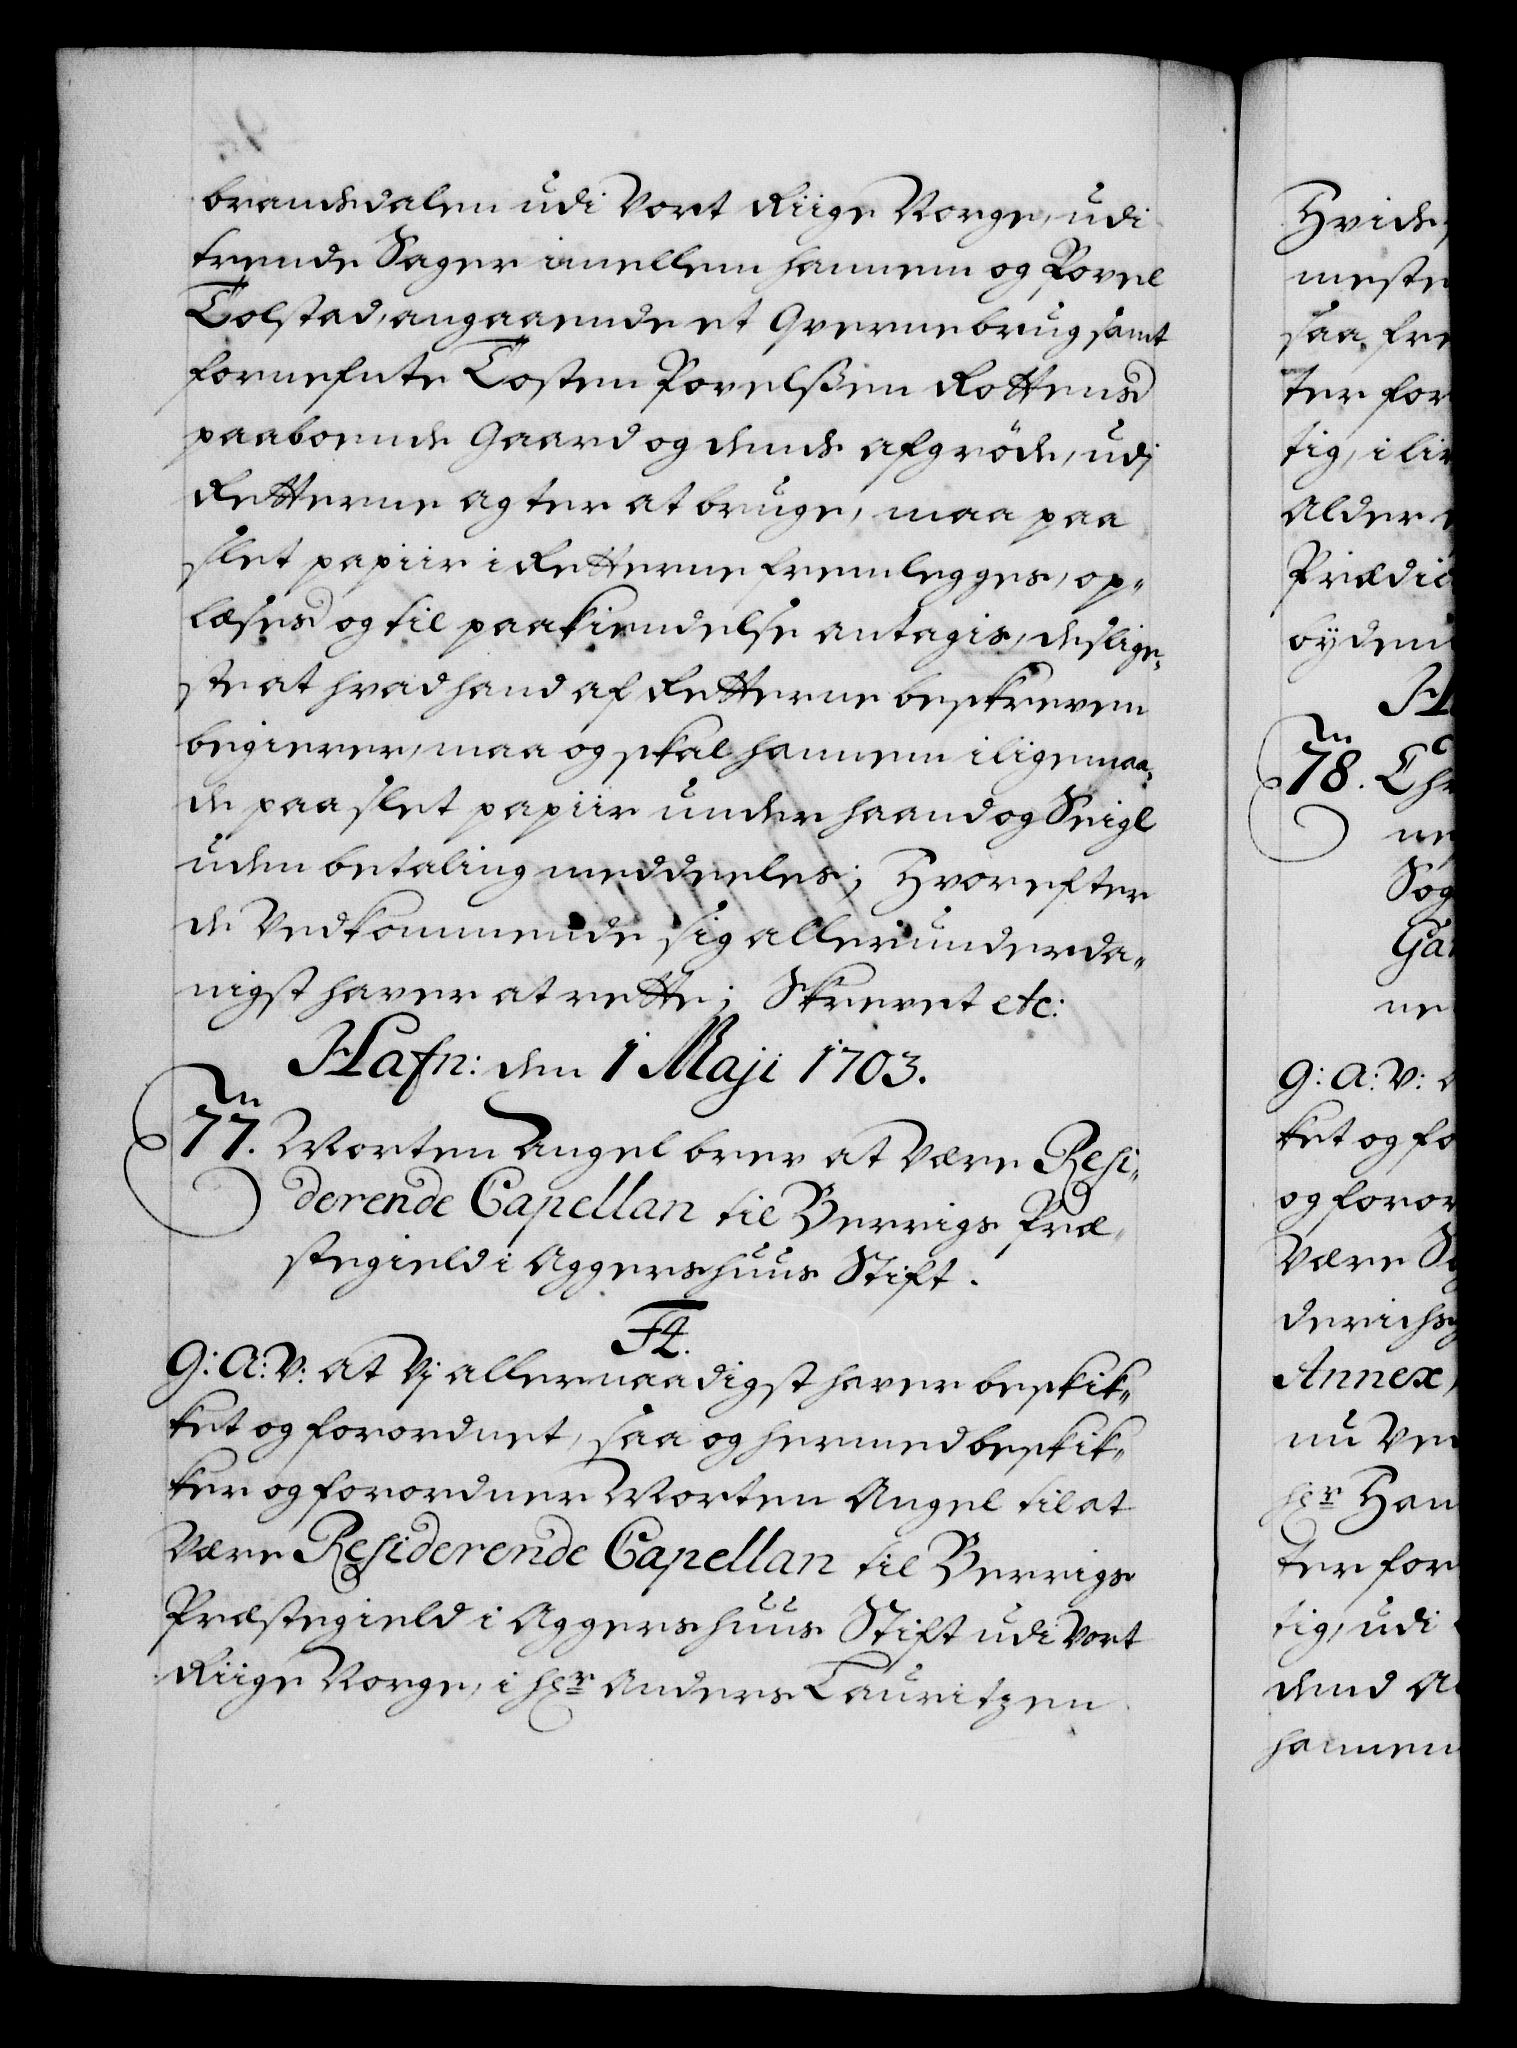 brandsdalen udi Vort Riige Norge, udi
trende Sager imellem hannem og Povel
Tolstad, angaaende et Qvernebrug samt
fornefnte Tosten Povelsøn Rottens
paaboende Gaard og dends afgrøde, udj
Retterne agter at bruge, maa paa
slet papiir i Retterne fremlegges, op-
læses og til paakiendelse antagis, deslige-
ste at hvad hand af Retterne beskreven
begierer, maa og skal hannem i ligemaa-
de paa slet papiir under haand og Seigl
uden betaling meddeeles; Hvorefter
de Vedkommende sig allerunderda-
nigst haver at rette; Skrevet etc:
Hafn: den 1 Maji 1703.
77. Morten Angel brev at være Resi-
derende Capellan til Berrigs Præ-
stegield i Aggershuus Stift.
F4.
G: A: V: at Vj allernaadigst haver beskik-
ket og forordnet, saa og hermed beskik-
ker og forordner Morten Angel til at
være Residerende Capellan til Berrigs
Præstegield i Aggershuus Stift udi Vort
Riige Norge, i hr Anders Lauritzen
Hvids
meste
saa fre
ter for
tig, i li
Alder
Prædi
byden
H
78. Chr
ne
Sog
Ga
ne
G: A: V:
ket og fo
og foror
være S
derichs
Annex,
nu Ve
hr Han
ter for
tig, udi
dend A
hannem